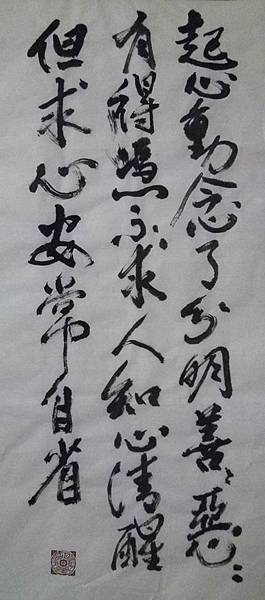 起心動念了分明善〻惡〻
有得憑不求人知心清醒
但求心安常自省